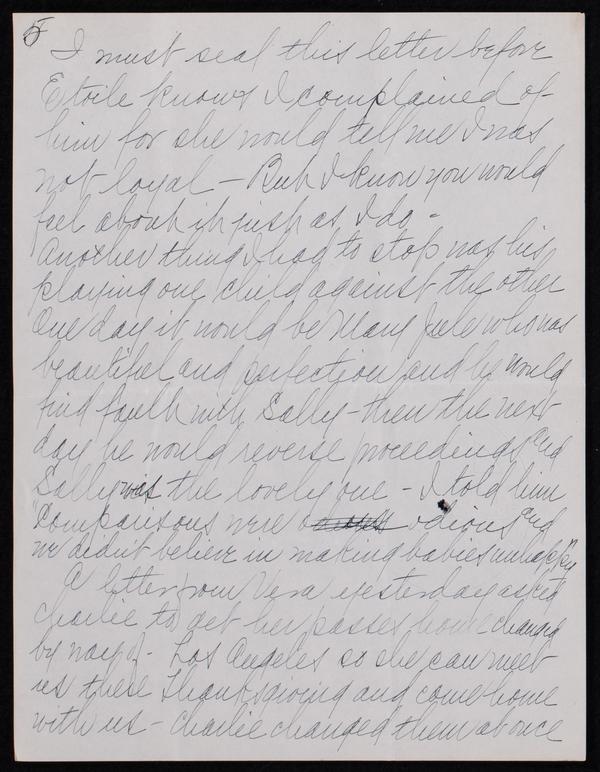 5
I must seal this letter before
Etoile knows I complained of
him for she would tell me I was
not loyal – But I know you would
feel about it just as I do –
Another thing I had to stop was his
playing one child against the other
One day it would be Mary Jule who was
beautiful and perfection and he would
find fault with Sally – then the next
day he would reverse proceedings and
Sally was the lovely one – I told him
"Comparisons were odious" and
we didn't believe in making babies unhappy
A letter from Vera yesterday asked
Charlie to get her passes home changed
by way of – Los Angeles so she can meet
us there Thanksgiving and come home
with us – Charlie changed them at once